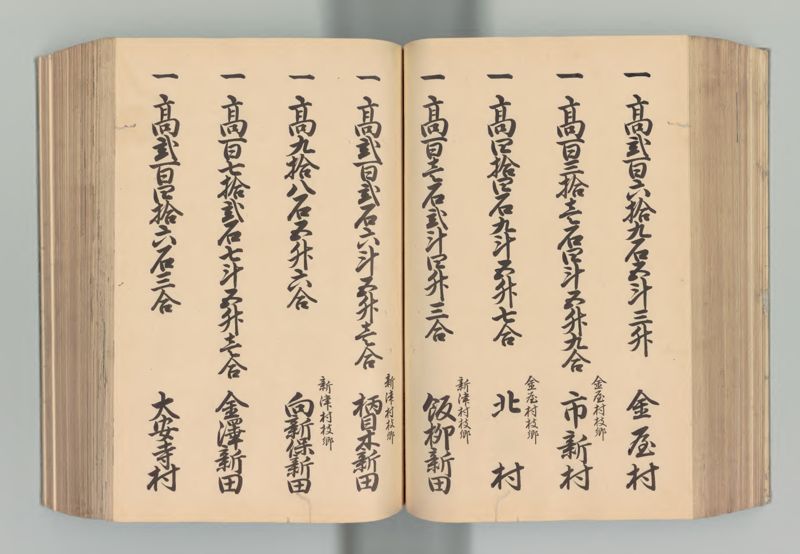 一 高弐百六拾九石五斗三升 金屋村
一 高百三拾壱石四斗五升九合 金屋村枝郷 市新村
一 高四拾四石九斗五升七合 金屋村枝郷 北村
一 高百壱石弐斗四升三合 新津村枝郷 飯柳新田
一 高弐百弐石六斗五升壱合 新津村枝郷 柄目木新田
一 高九拾八石五升六合 新津村枝郷 向新保新田
一 高百七拾弐石七斗五升壱合 金澤新田
一 高弐百四拾六石三合 大安寺村